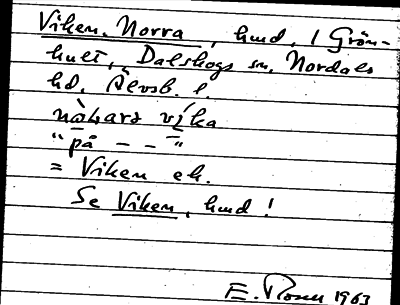 Viken, Norra, hmd, i Grön-
hult, Dalskogs sn, Nordals
hd, Älvsb. l.
nò̀rare víka
"på – – "
= Viken ek.
Se Viken, hmd!
E. Rosen 1963